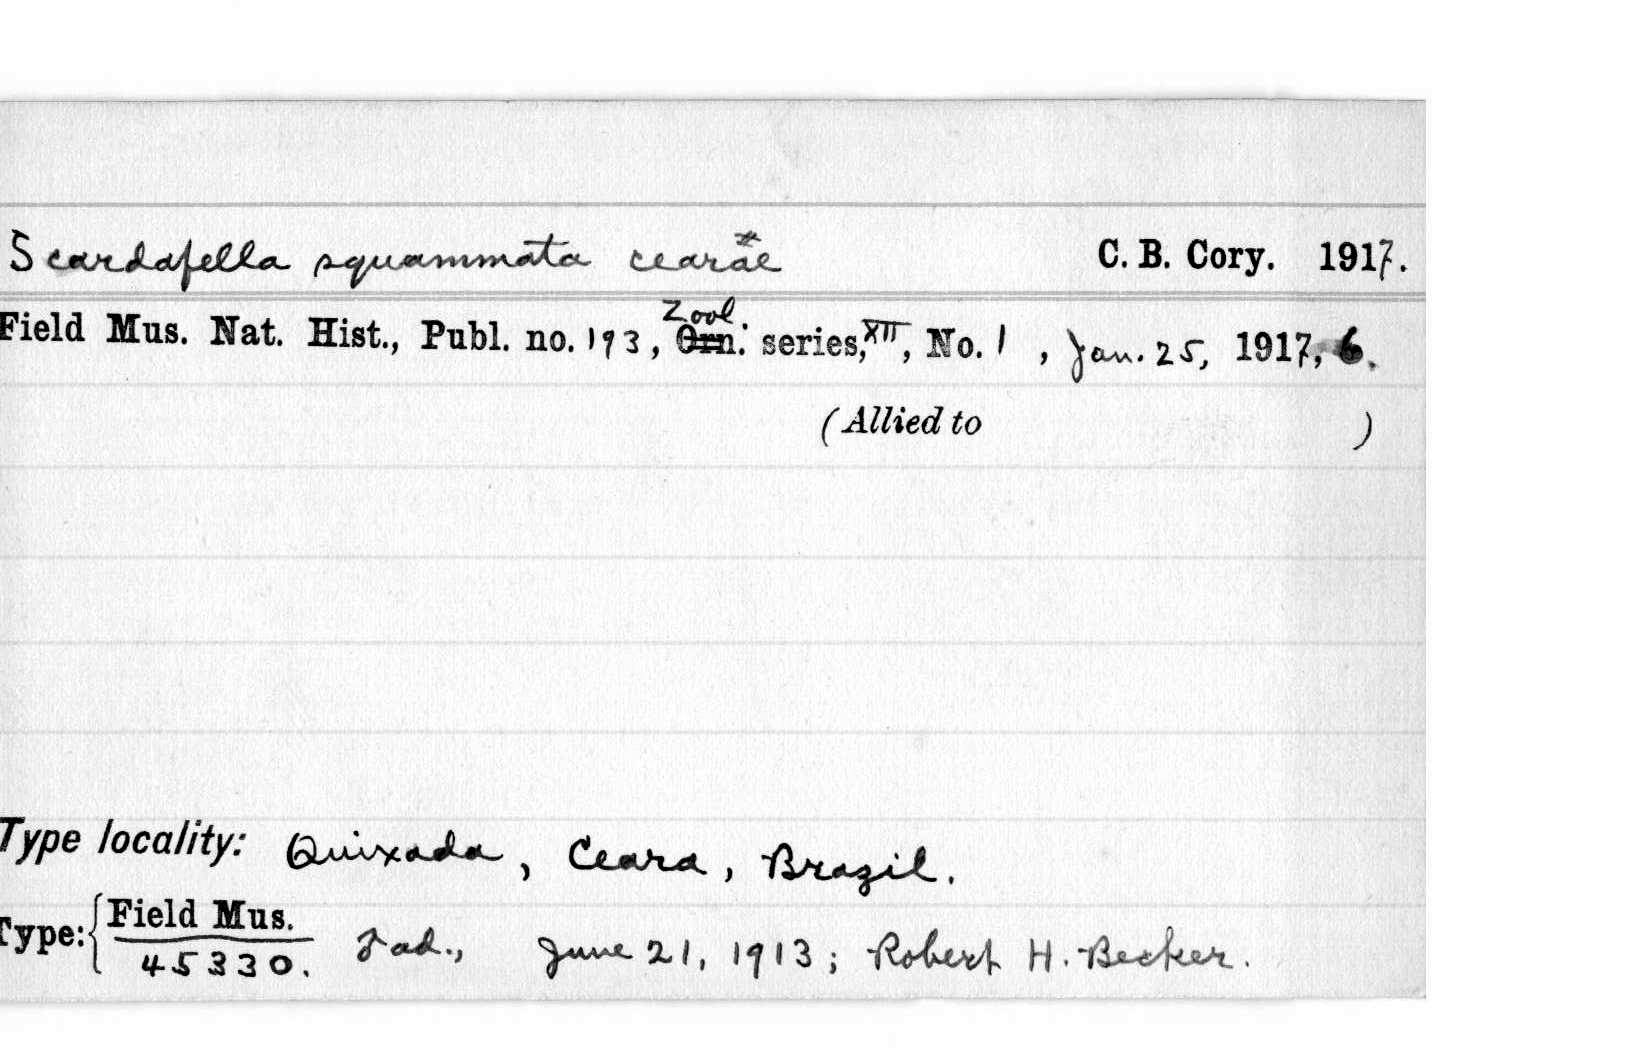 Scardafella squammata cearae C. B. Cory. 1917.
Field Mus. Nat. Hist., Publ. no. 193, Zool. Orn. series, XII, No. 1, Jan. 25, 1917, 6.
(Allied to )
Type locality: Quixada, Ceara, Brazil.
Type: { Field Mus.
45330. ad., June 21, 1913; Robert H. Becker.